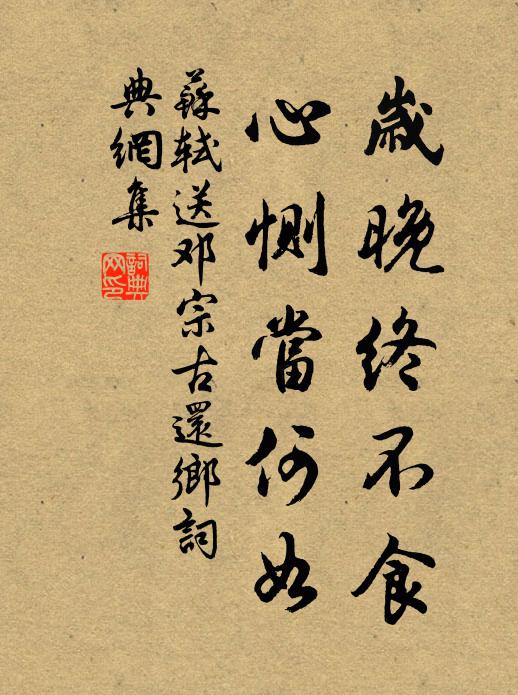 歲晚終不食
心惻當何如
蘇軾送邓宗古還鄉詞
典網集
詞典
网印